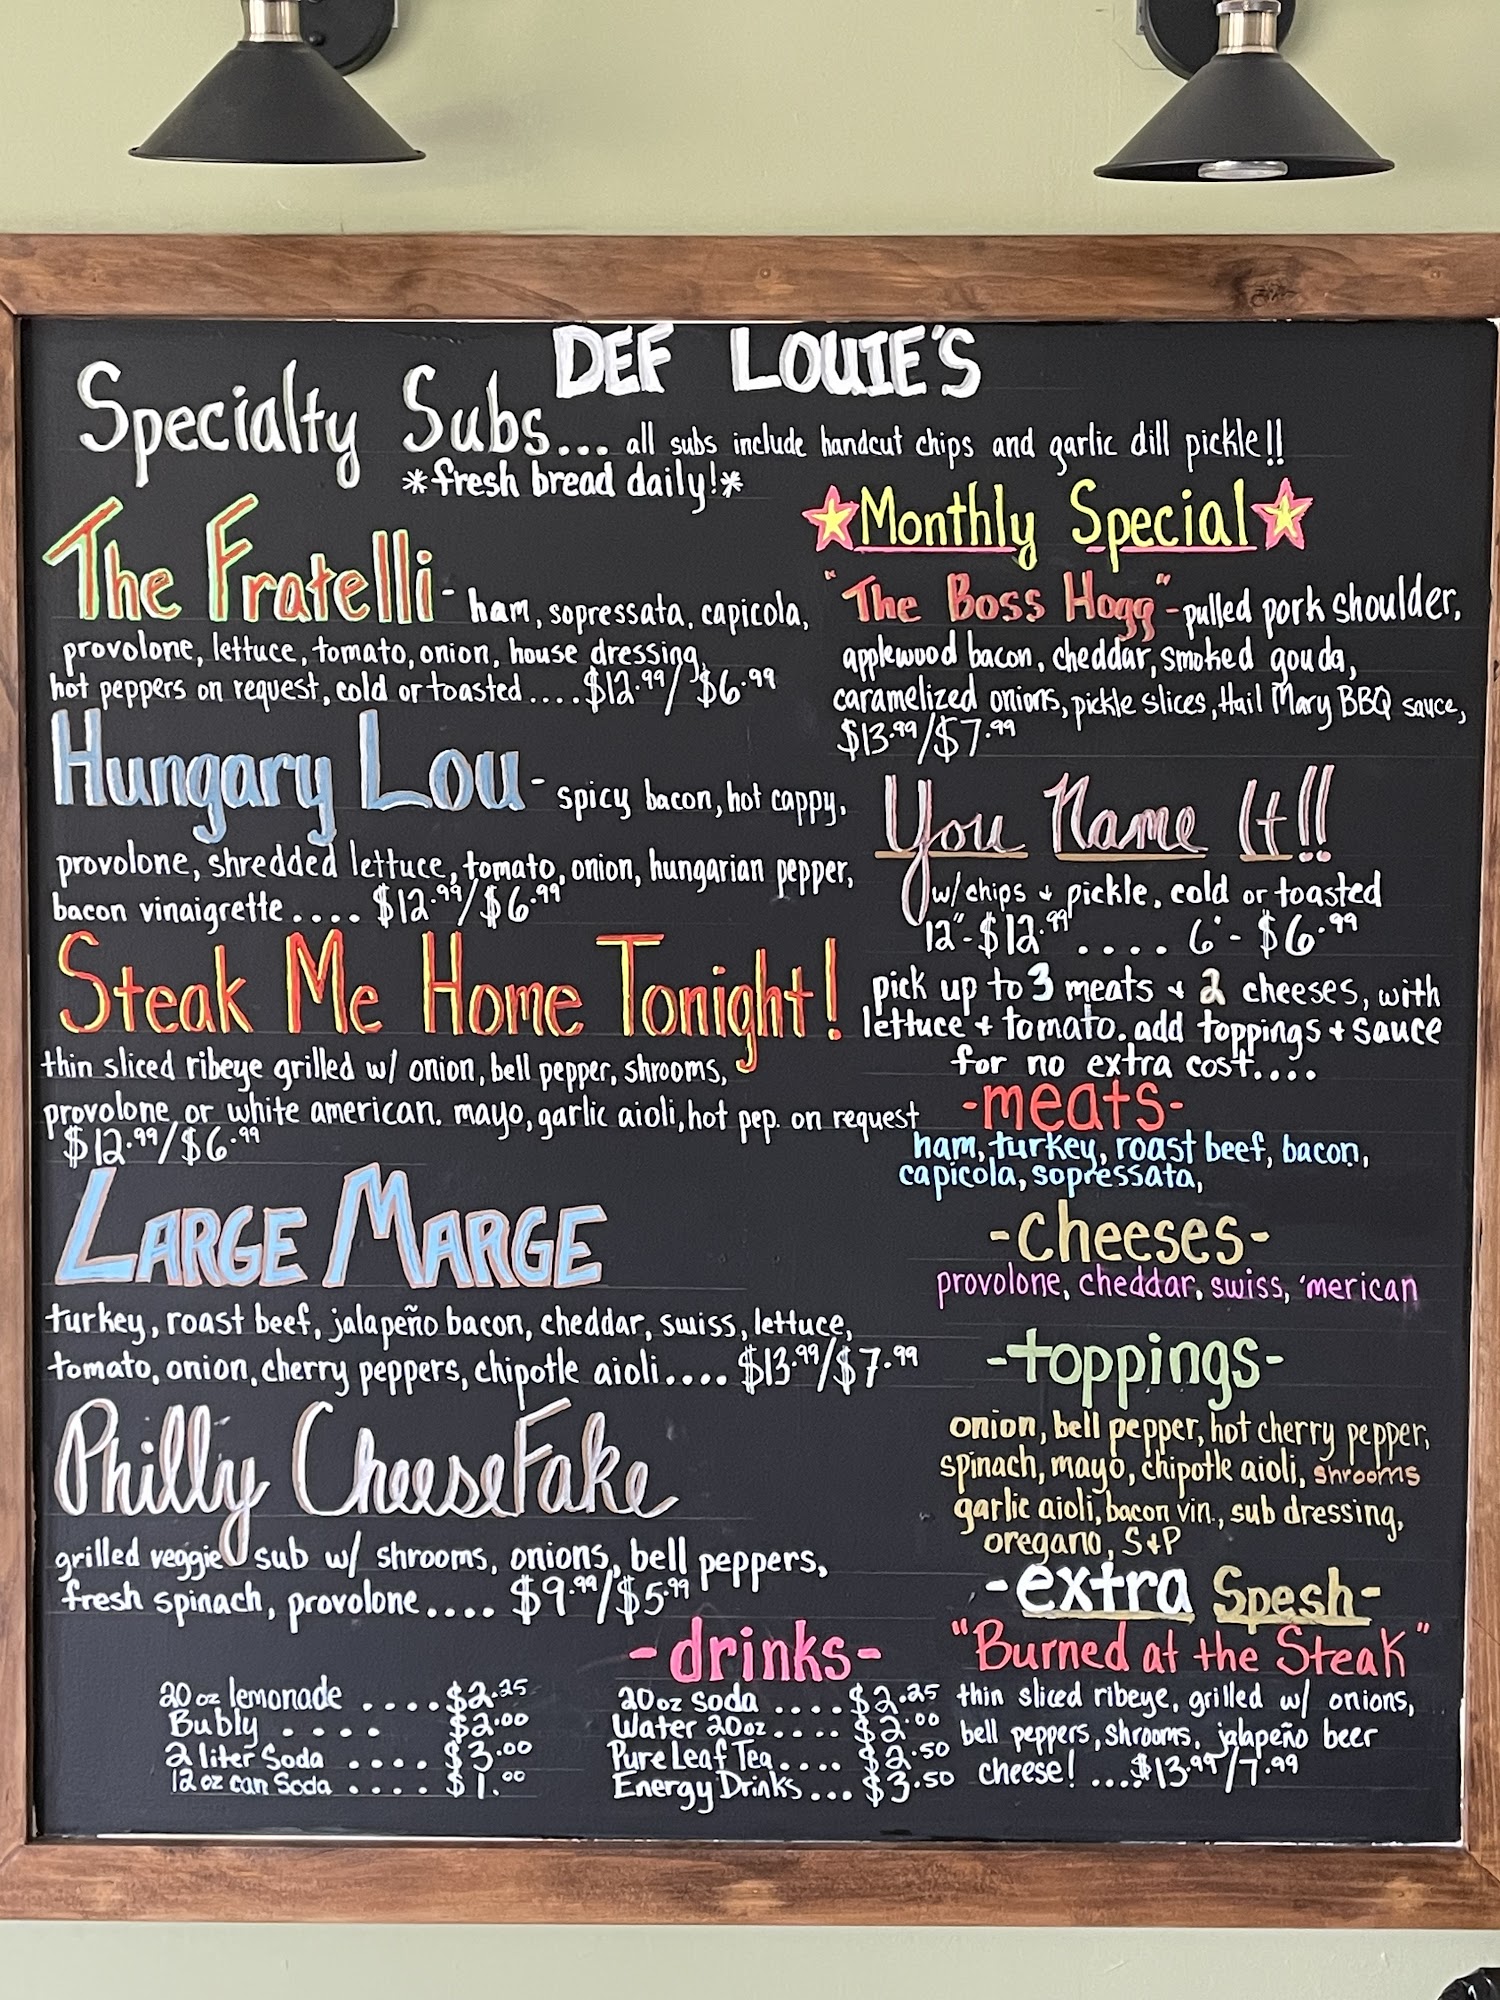 DEF LOUIE'S
Specialty Subs... all subs include handcut chips and garlic dill pickle!!
*fresh bread daily!*
The Fratelli - ham, sopressata, capicola,
provolone, lettuce, tomato, onion, house dressing,
hot peppers on request, cold or toasted ....$12.99/$6.99
Hungary Lou - spicy bacon, hot cappy,
provolone, shredded lettuce, tomato, onion, hungarian pepper,
bacon vinaigrette .... $12.99/$6.99
Steak Me Home Tonight!
thin sliced ribeye grilled w/ onion, bell pepper, shrooms,
provolone or white american. mayo, garlic aioli, hot pep. on request
$12.99/$6.99
LARGE MARGE
turkey, roast beef, jalapeño bacon, cheddar, swiss, lettuce,
tomato, onion, cherry peppers, chipotle aioli.... $13.99/$7.99
Philly CheeseFake
grilled veggie sub w/ shrooms, onions, bell peppers,
fresh spinach, provolone.... $9.99/$5.99
☆Monthly Special☆
"The Boss Hogg" - pulled pork shoulder,
applewood bacon, cheddar, smoked gouda,
caramelized onions, pickle slices, Hail Mary BBQ sauce,
$13.99/$7.99
You Name It!!
w/ chips + pickle, cold or toasted
12"-$12.99 .... 6' - $6.99
pick up to 3 meats + 2 cheeses, with
lettuce + tomato. add toppings + sauce
for no extra cost....
-meats-
ham, turkey, roast beef, bacon,
capicola, sopressata,
-cheeses-
provolone, cheddar, swiss, 'merican
-toppings-
onion, bell pepper, hot cherry pepper,
spinach, mayo, chipotle aioli, shrooms
garlic aioli, bacon vin., sub dressing,
oregano, S+P
-extra Spesh-
"Burned at the Steak"
thin sliced ribeye, grilled w/ onions,
bell peppers, shrooms, jalapeño beer
cheese! ....$13.99/7.99
-drinks-
20 oz lemonade ....$2.25
Bubly .... $2.00
2 liter Soda .... $3.00
12 oz can Soda .... $1.00
20oz Soda .... $2.25
Water 20oz .... $2.00
Pure Leaf Tea .... $2.50
Energy Drinks ... $3.50